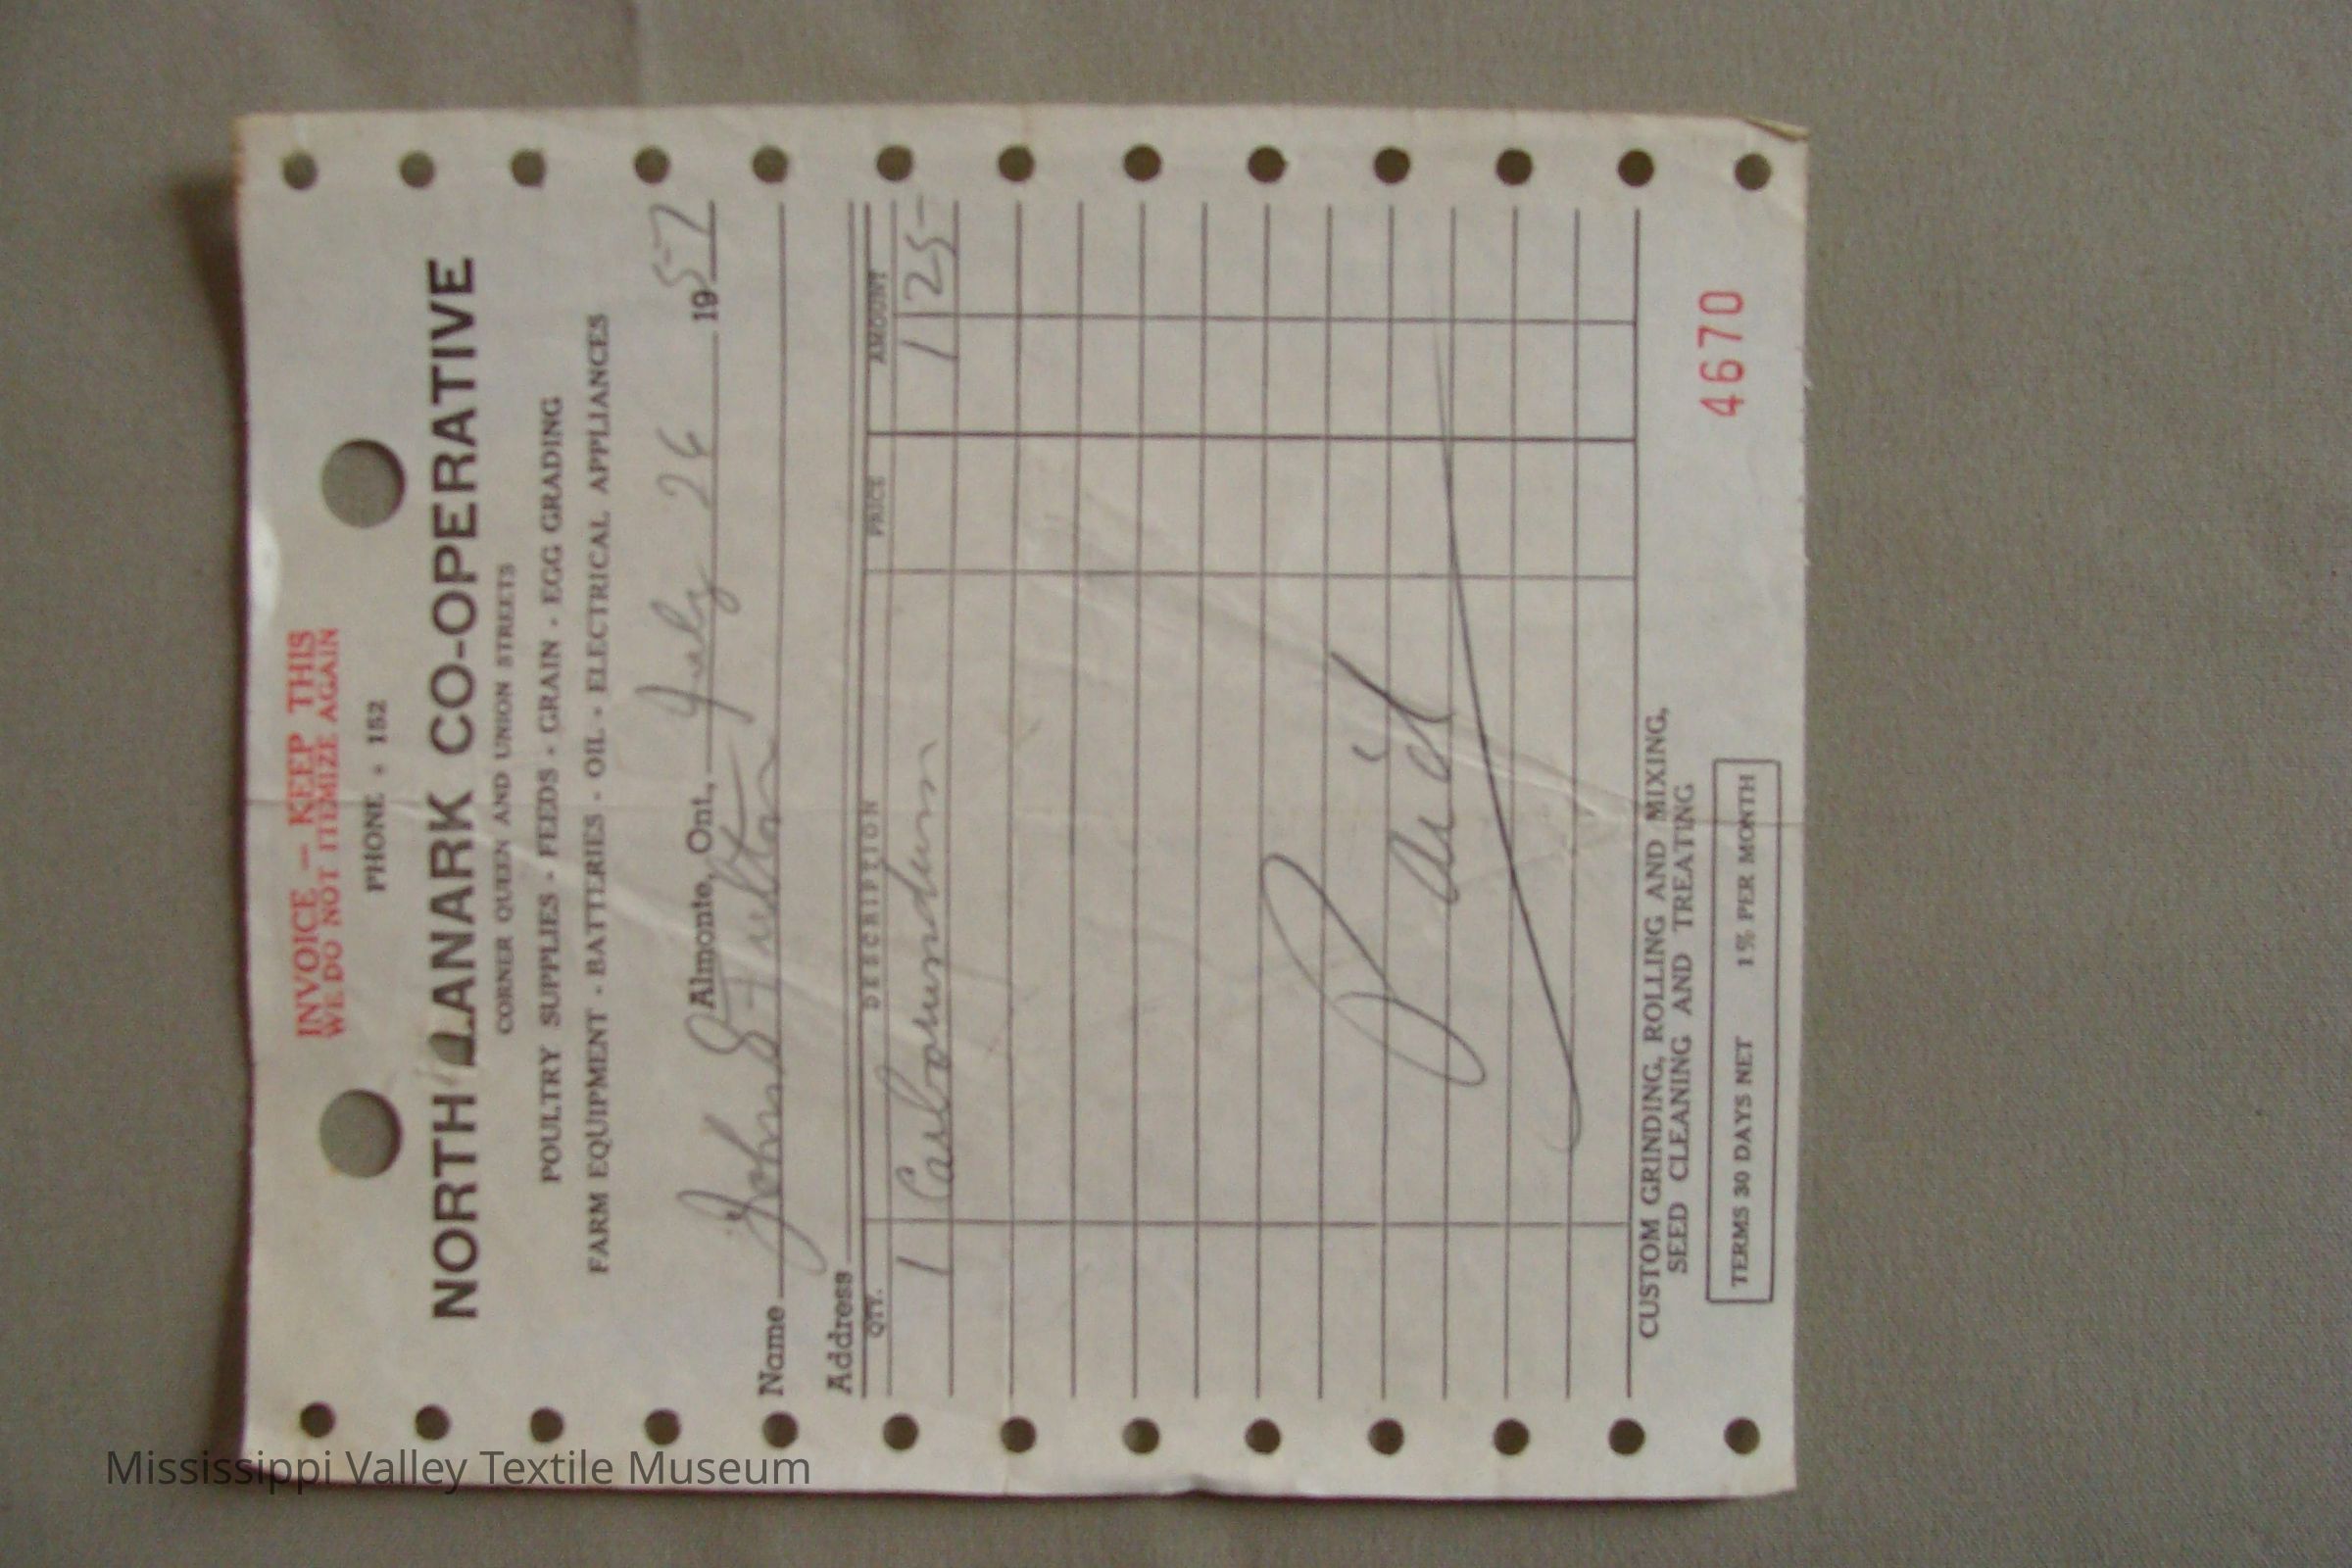 INVOICE — KEEP THIS
WE DO NOT ITEMIZE AGAIN
PHONE - 152
NORTH LANARK CO-OPERATIVE
CORNER QUEEN AND UNION STREETS
POULTRY SUPPLIES - FEEDS - GRAIN - EGG GRADING
FARM EQUIPMENT - BATTERIES - OIL - ELECTRICAL APPLIANCES
Almonte, Ont., July 26 1957
Name John S Fulton
Address
QTY. DESCRIPTION PRICE AMOUNT
1 Carborundum 1 25
Paid
CUSTOM GRINDING, ROLLING AND MIXING,
SEED CLEANING AND TREATING
4670
TERMS 30 DAYS NET 1% PER MONTH
Mississippi Valley Textile Museum